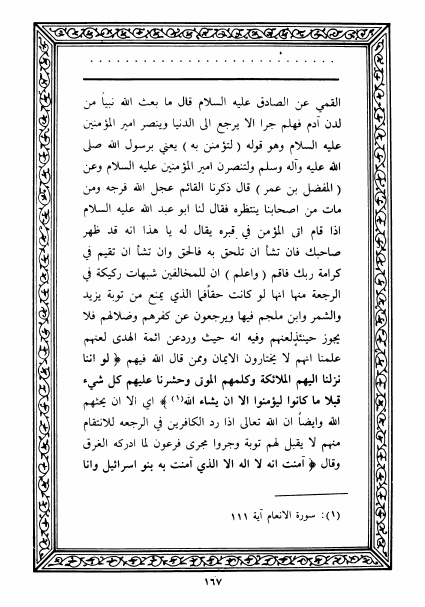 القمي عن الصادق عليه السلام قال ما بعث الله نبياً من
لدن آدم فهلم جرا الا يرجع الى الدنيا وينصر امير المؤمنين
عليه السلام وهو قوله ( لتؤمنن به ) يعني برسول الله صلى
الله عليه وآله وسلم ولتنصرن امير المؤمنين عليه السلام وعن
( المفضل بن عمر ) قال ذكرنا القائم عجل الله فرجه ومن
مات من اصحابنا ينتظره فقال لنا ابو عبد الله عليه السلام
اذا قام اتى المؤمن في قبره يقال له يا هذا انه قد ظهر
صاحبك فان تشأ ان تلحق به فالحق وان تشأ ان تقيم في
كرامة ربك فاقم ( واعلم ) ان للمخالفين شبهات ركيكة في
الرجعة منها انها لو كانت حقاً فما الذي يمنع من توبة يزيد
والشمر وابن ملجم فيها ويرجعون عن كفرهم وضلالهم فلا
يجوز حينئذٍ لعنهم وفيه انه حيث وردعن ائمة الهدى لعنهم
علمنا انهم لا يختارون الايمان وممن قال الله فيهم ﴿ لو اننا
نزلنا اليهم الملائكة وكلمهم الموتى وحشرنا عليهم كل شيء
قبلا ما كانوا ليؤمنوا الا ان يشاء الله (١) ﴾ اي الا ان يجبرهم
الله وايضاً ان الله تعالى اذا رد الكافرين في الرجعه للانتقام
منهم لا يقبل لهم توبة وجروا مجرى فرعون لما ادركه الغرق
وقال ﴿ آمنت انه لا اله الا الذي آمنت به بنو اسرائيل وانا
(١): سورة الانعام آية ١١١
١٦٧